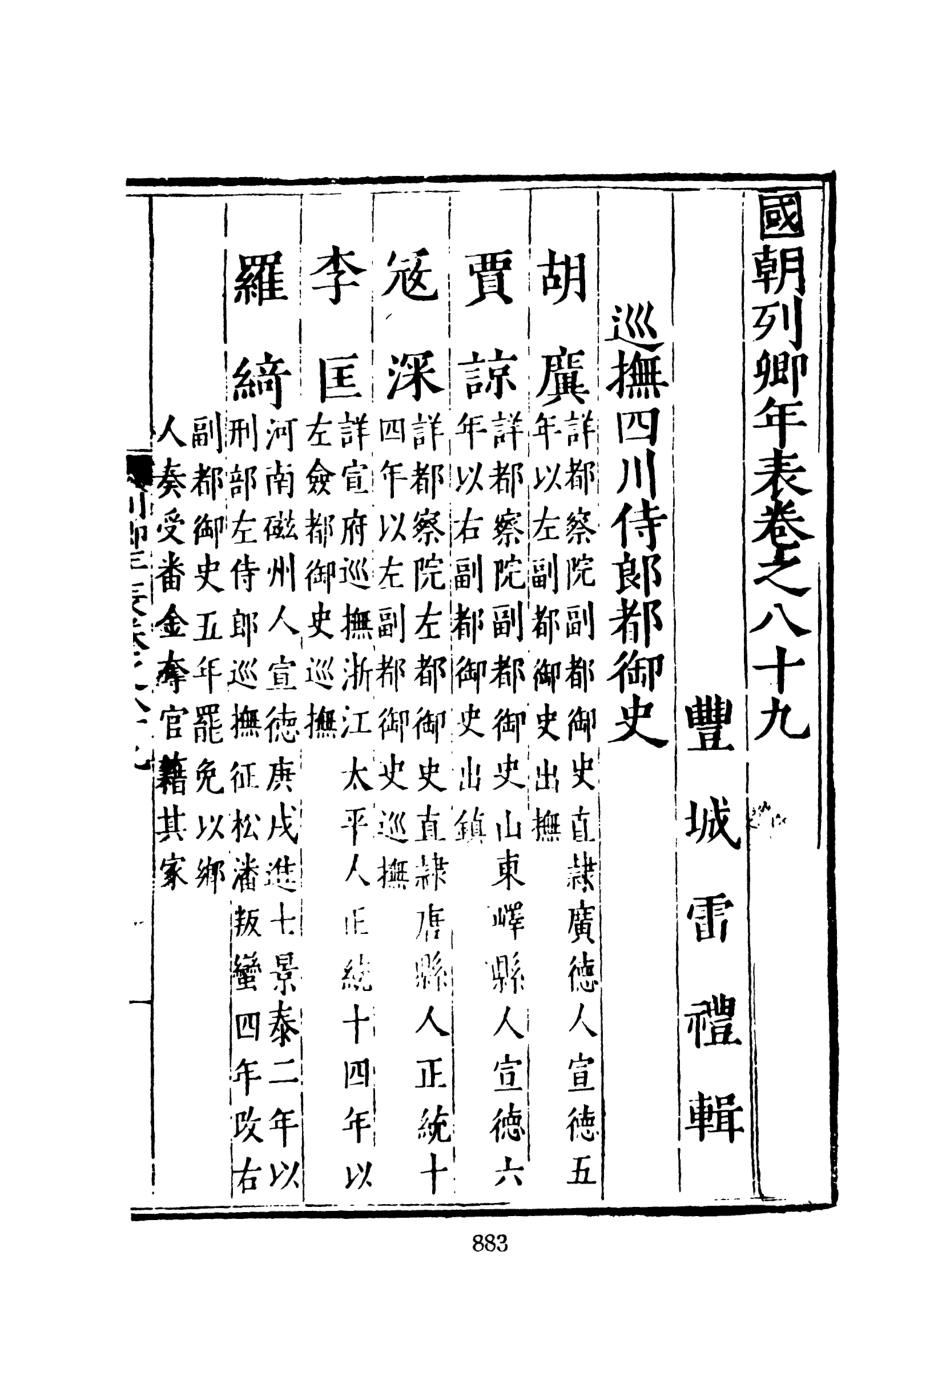 國朝列卿年表卷之八十九
豐城雷禮輯
巡撫四川侍郎都御史
胡廙
詳都察院副都御史直隷廣德人宣德五
年以左副都御史出撫
賈諒
詳都察院副都御史山東嶧縣人宣德六
年以右副都御史出鎮
宼深
詳都察院左都御史直隷唐縣人正統十
四年以左副都御史巡撫
李匡
詳宣府巡撫浙江太平人正統十四年以
左僉都御史巡撫
羅綺
河南磁州人宣德庚戌進士景泰二年以
刑部左侍郎巡撫征松潘叛蠻四年改右
副都御史五年罷免以鄉
人奏受畨金奪官籍其家
883